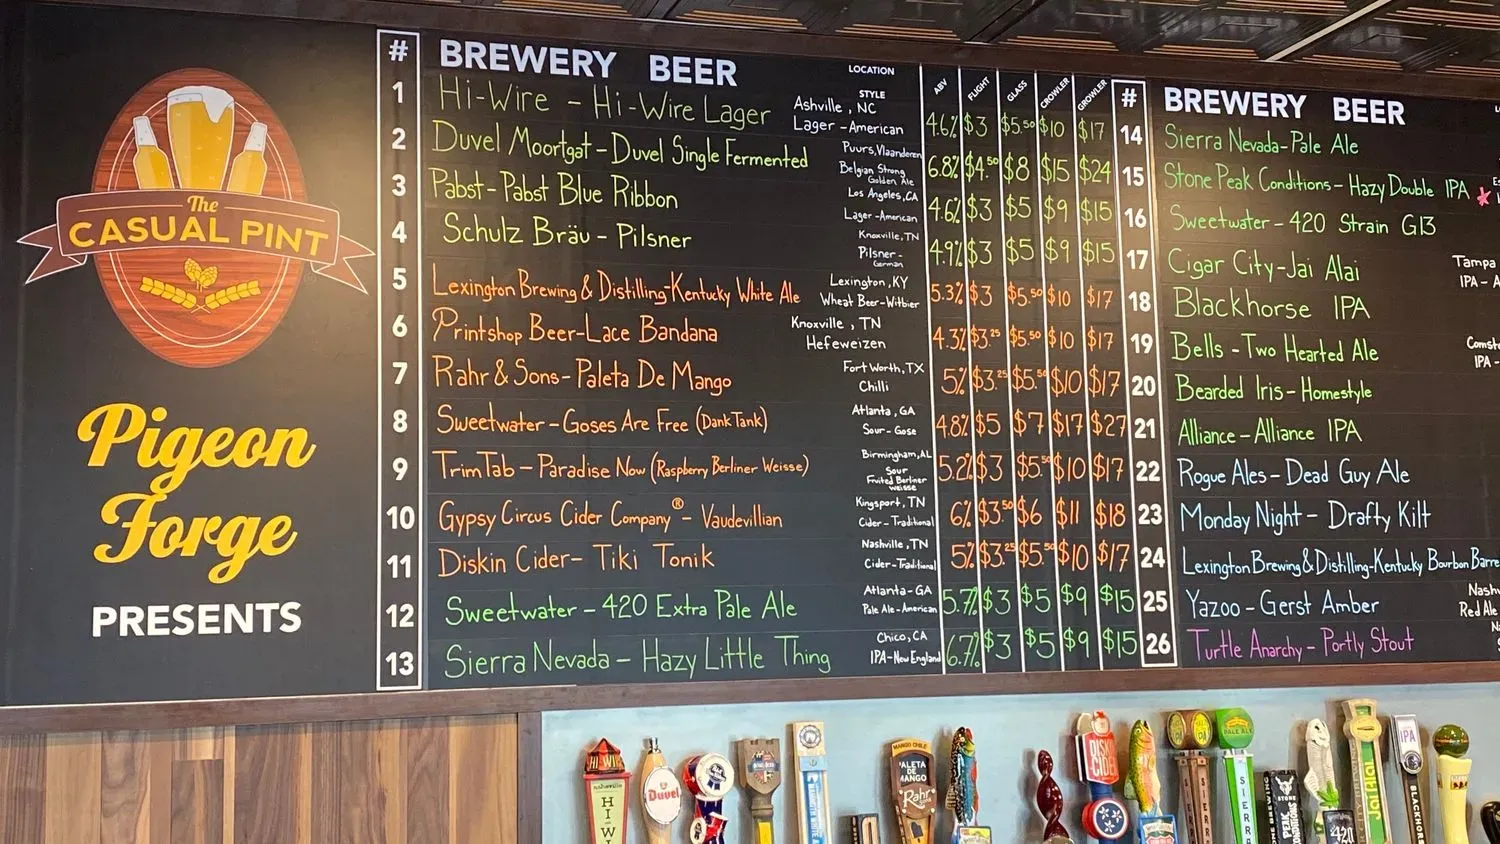 The
CASUAL PINT
Pigeon
Forge
PRESENTS
# BREWERY BEER LOCATION STYLE ABV FLIGHT GLASS CROWLER GROWLER
1 Hi-Wire - Hi-Wire Lager Ashville, NC Lager-American 4.6% $3 $5.50 $10 $17
2 Duvel Moortgat-Duvel Single Fermented Puurs, Vlaanderen Belgian Strong Golden Ale 6.8% $4.50 $8 $15 $24
3 Pabst-Pabst Blue Ribbon Los Angeles, CA Lager-American 4.6% $3 $5 $9 $15
4 Schulz Bräu - Pilsner Knoxville, TN Pilsner-German 4.9% $3 $5 $9 $15
5 Lexington Brewing & Distilling-Kentucky White Ale Lexington, KY Wheat Beer-Witbier 5.3% $3 $5.50 $10 $17
6 Printshop Beer-Lace Bandana Knoxville, TN Hefeweizen 4.3% $3.25 $5.50 $10 $17
7 Rahr & Sons-Paleta De Mango Fort Worth, TX Chilli 5% $3.25 $5.50 $10 $17
8 Sweetwater-Goses Are Free (Dank Tank) Atlanta, GA Sour-Gose 4.8% $5 $7 $17 $27
9 TrimTab-Paradise Now (Raspberry Berliner Weisse) Birmingham, AL Sour Fruited Berliner weisse 5.2% $3 $5.50 $10 $17
10 Gypsy Circus Cider Company®- Vaudevillian Kingsport, TN Cider-Traditional 6% $3.50 $6 $11 $18
11 Diskin Cider- Tiki Tonik Nashville, TN Cider-Traditional 5% $3.25 $5.50 $10 $17
12 Sweetwater - 420 Extra Pale Ale Atlanta-GA Pale Ale-American 5.7% $3 $5 $9 $15
13 Sierra Nevada - Hazy Little Thing Chico, CA IPA-New England 6.7% $3 $5 $9 $15
# BREWERY BEER
14 Sierra Nevada-Pale Ale
15 Stone Peak Conditions-Hazy Double IPA
16 Sweetwater-420 Strain G13
17 Cigar City-Jai Alai Tampa IPA-A
18 Blackhorse IPA
19 Bells-Two Hearted Ale Comst IPA-
20 Bearded Iris-Homestyle
21 Alliance-Alliance IPA
22 Rogue Ales-Dead Guy Ale
23 Monday Night- Drafty Kilt
24 Lexington Brewing & Distilling-Kentucky Bourbon Barre
25 Yazoo-Gerst Amber Nash Red Ale
26 Turtle Anarchy-Portly Stout
HI-WIRE
nashville
HI-WI
Duvel
MANGO CHILE
PALETA DE MANGO
Rahr
DISKIN CIDER
PALE ALE
SIERRA
SIERR
STONE
PEAK CONDITIONS
420
JAI ALAI
IPA
BLACKHORS